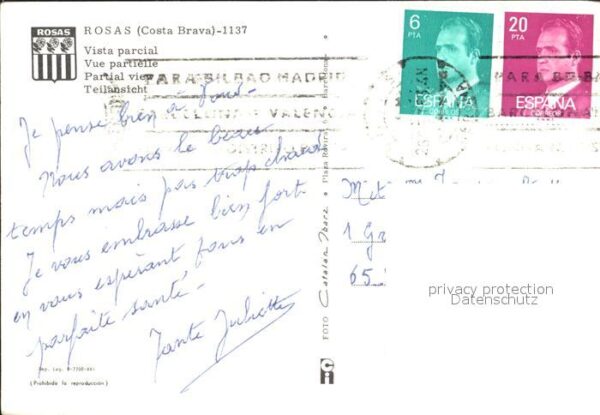 ROSAS
ROSAS (Costa Brava)-1137
Vista parcial
Vue partielle
Partial view
Teilansicht
6
PTA
ESPAÑA
CORREOS
20
PTA
ESPAÑA
CORREOS
PARA BILBAO MADRID
VALENC
PARA
BARCELONA
Je pense bien à vous.
Nous avons le beau
temps mais pas trop chaud
Je vous embrasse bien fort
en vous espérant tous en
parfaite santé.
Tante Juliette
1
65
FOTO Catalan Ibarz • Plaza Rovira • Barcelona
Imp. Ley. B-7700-XXI
(Prohibida la reproducción)
privacy protection
Datenschutz